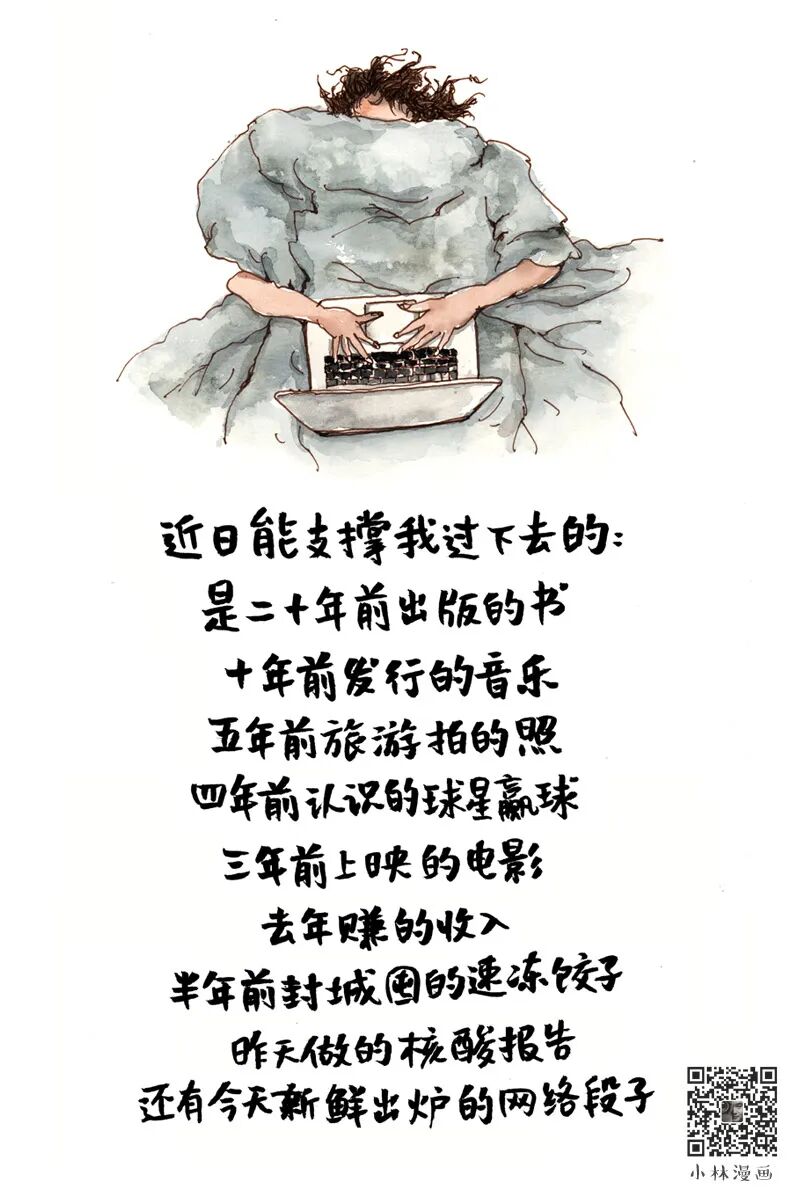 近日能支撑我过下去的:
是二十年前出版的书
十年前发行的音乐
五年前旅游拍的照
四年前认识的球星赢球
三年前上映的电影
去年赚的收入
半年前封城囤的速冻饺子
昨天做的核酸报告
还有今天新鲜出炉的网络段子
小林漫画